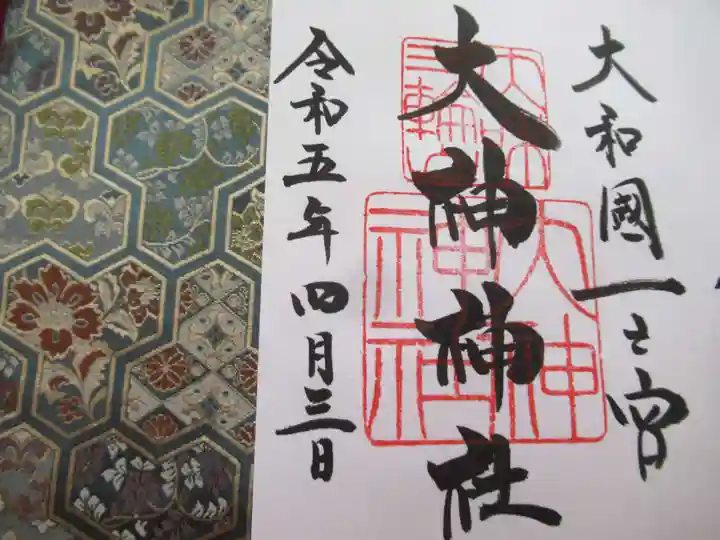 大和國一之宮
大神神社
三輪
大神
神社
令和五年四月三日